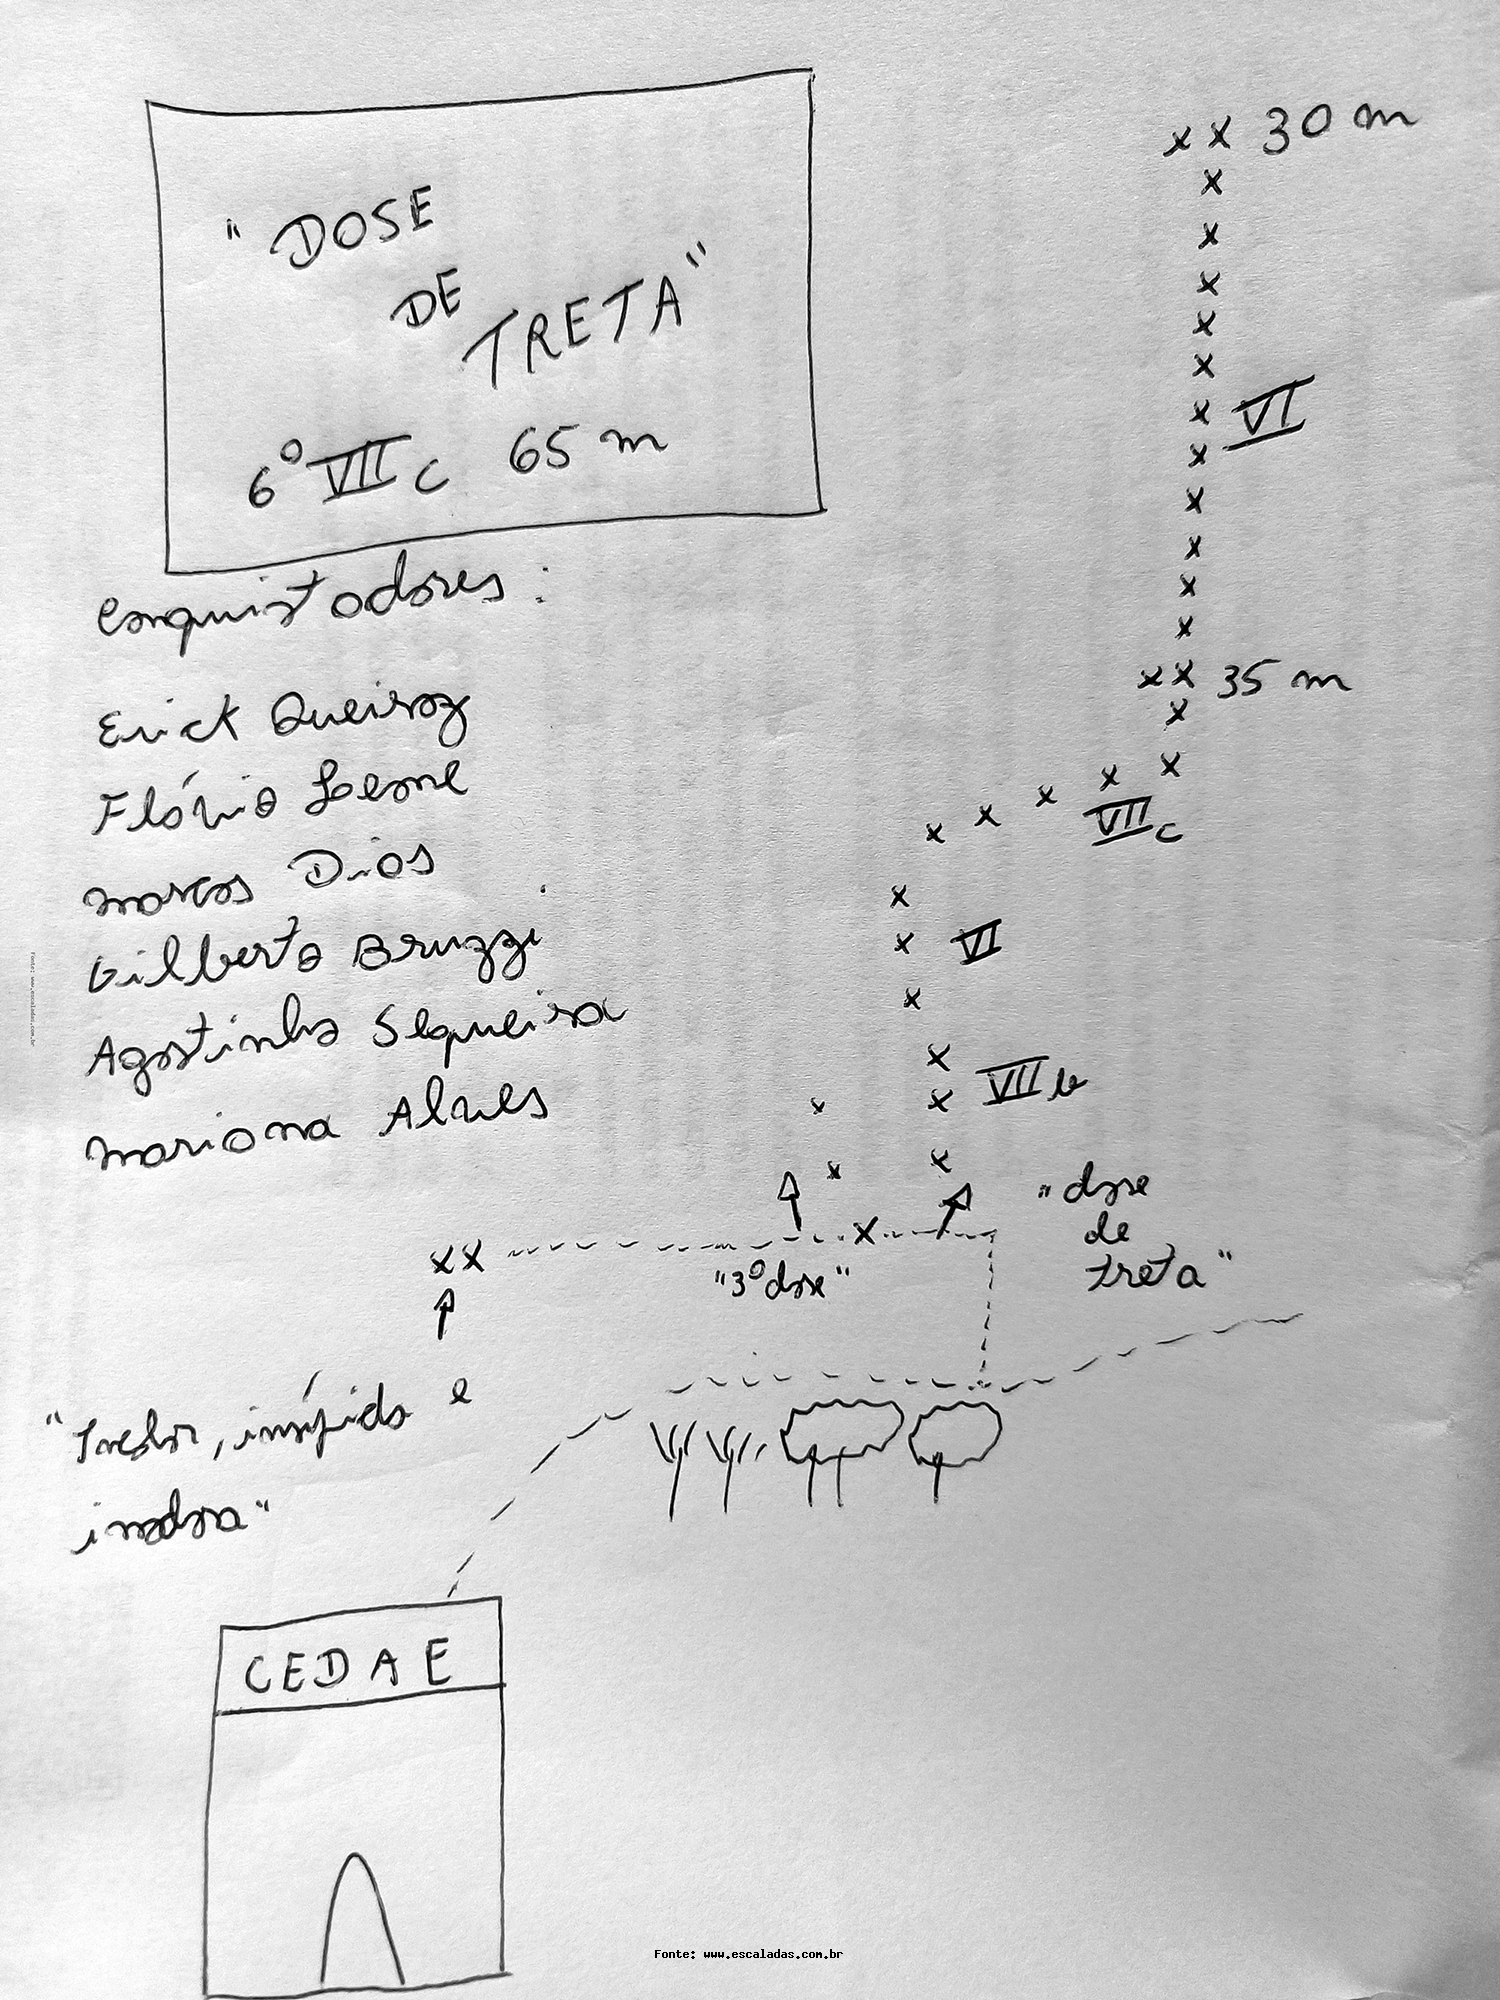 "DOSE
DE
TRETA"
6° VIIc 65 m
Conquistadores:
Erick Queiroz
Flávio Leone
Marcos Dias
Gilberto Bruzzi
Agostinho Sequeira
Mariana Alves
x x 30 m
x
x
x
x
x
x VI
x
x
x
x
x
x x 35 m
x
x x x x x
VIIc
x
x VI
x
x
x x VIIb
x x
"dose
de
treta"
xx x
"3º dose"
, insípida e
inodora"
CEDAE
Fonte: www.escaladas.com.br
Fonte: www.escaladas.com.br